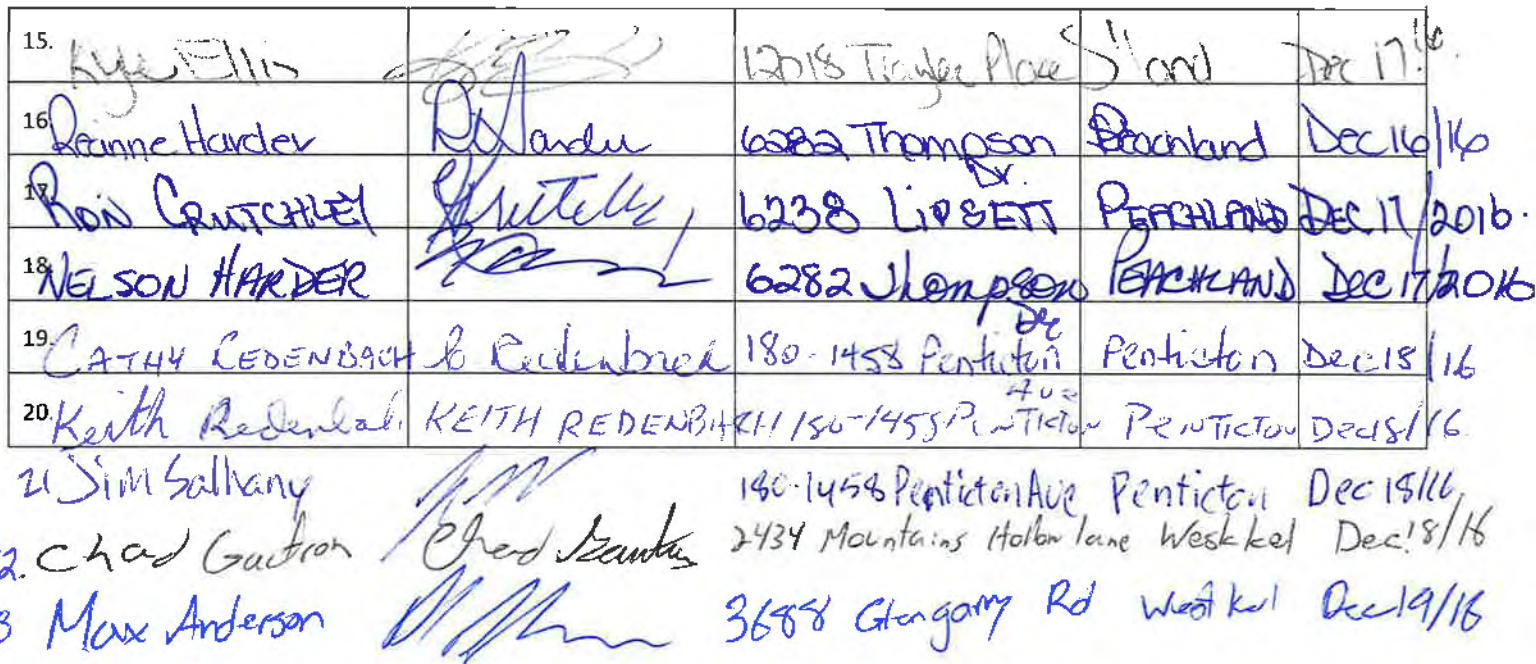 15. Kyle Ellis 12018 Trayler Place S'land Dec 17/16.
16. Reanne Harder R Harder 6282 Thompson Dr. Peachland Dec 16/16
17. RON CRUTCHLEY 6238 LIPSETT PEACHLAND DEC 17/2016.
18. NELSON HARDER 6282 Thompson Dr PEACHLAND DEC 17/2016
19. CATHY REDENBACH C Redenbach 180-1458 Penticton Ave Penticton Dec 18/16
20. Keith Redenbach KEITH REDENBACH 180-1458 PENTICTON PENTICTON Dec 18/16
21 Jim Salhany 180-1458 Penticton Ave Penticton Dec 18/16
2. Chad Gautron Chad Gautron 2434 Mountains Hollow lane West kel Dec 18/16
3 Max Anderson 3688 Glengarry Rd West kel Dec 19/16